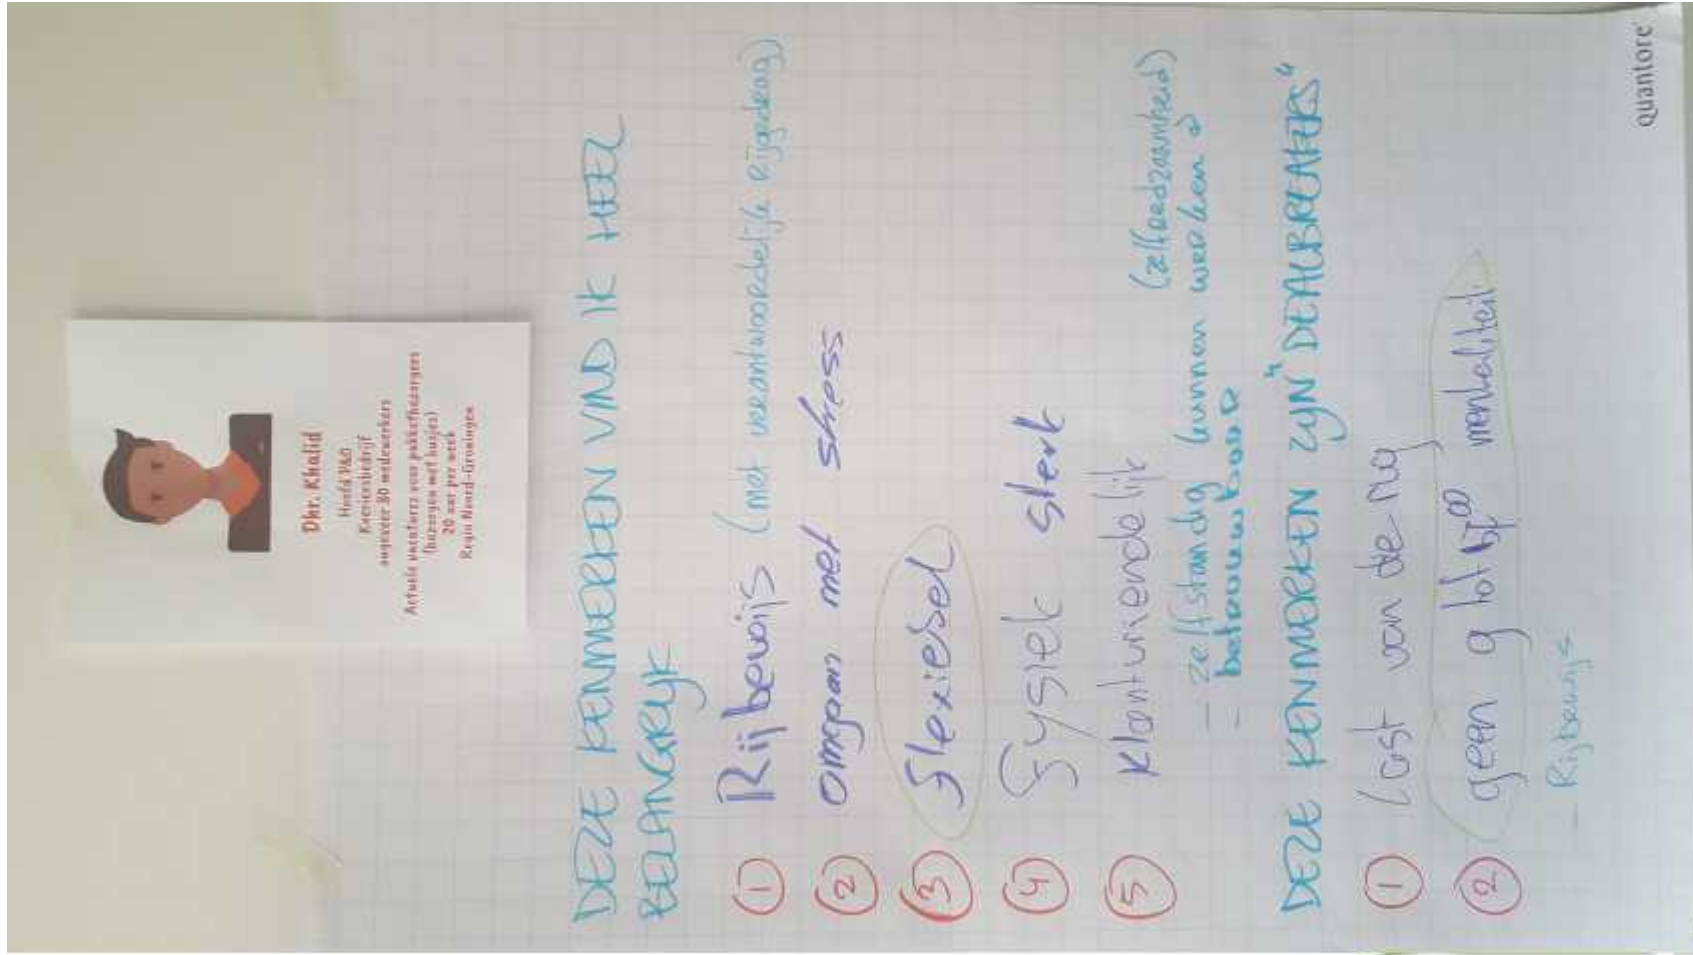 Dhr. Khalid
Hoofd P&O
Koeriersbedrijf
ongeveer 80 medewerkers
Actuele vacatures voor pakketbezorgers
(bezorgen met busjes)
20 uur per week
Regio Noord-Groningen
DEZE KENMERKEN VIND IK HEEL
BELANGRIJK
① Rijbewijs (met verantwoordelijk rijgedrag)
② omgaan met stress
③ flexiebel
④ fysiek sterk
⑤ klantvriendelijk
(zelfredzaamheid)
- zelfstandig kunnen werken
- betrouwbaar
DEZE KENMERKEN ZIJN "DEALBREAKERS"
① last van de rug
② geen mentaliteit
- Rijbewijs
quantore